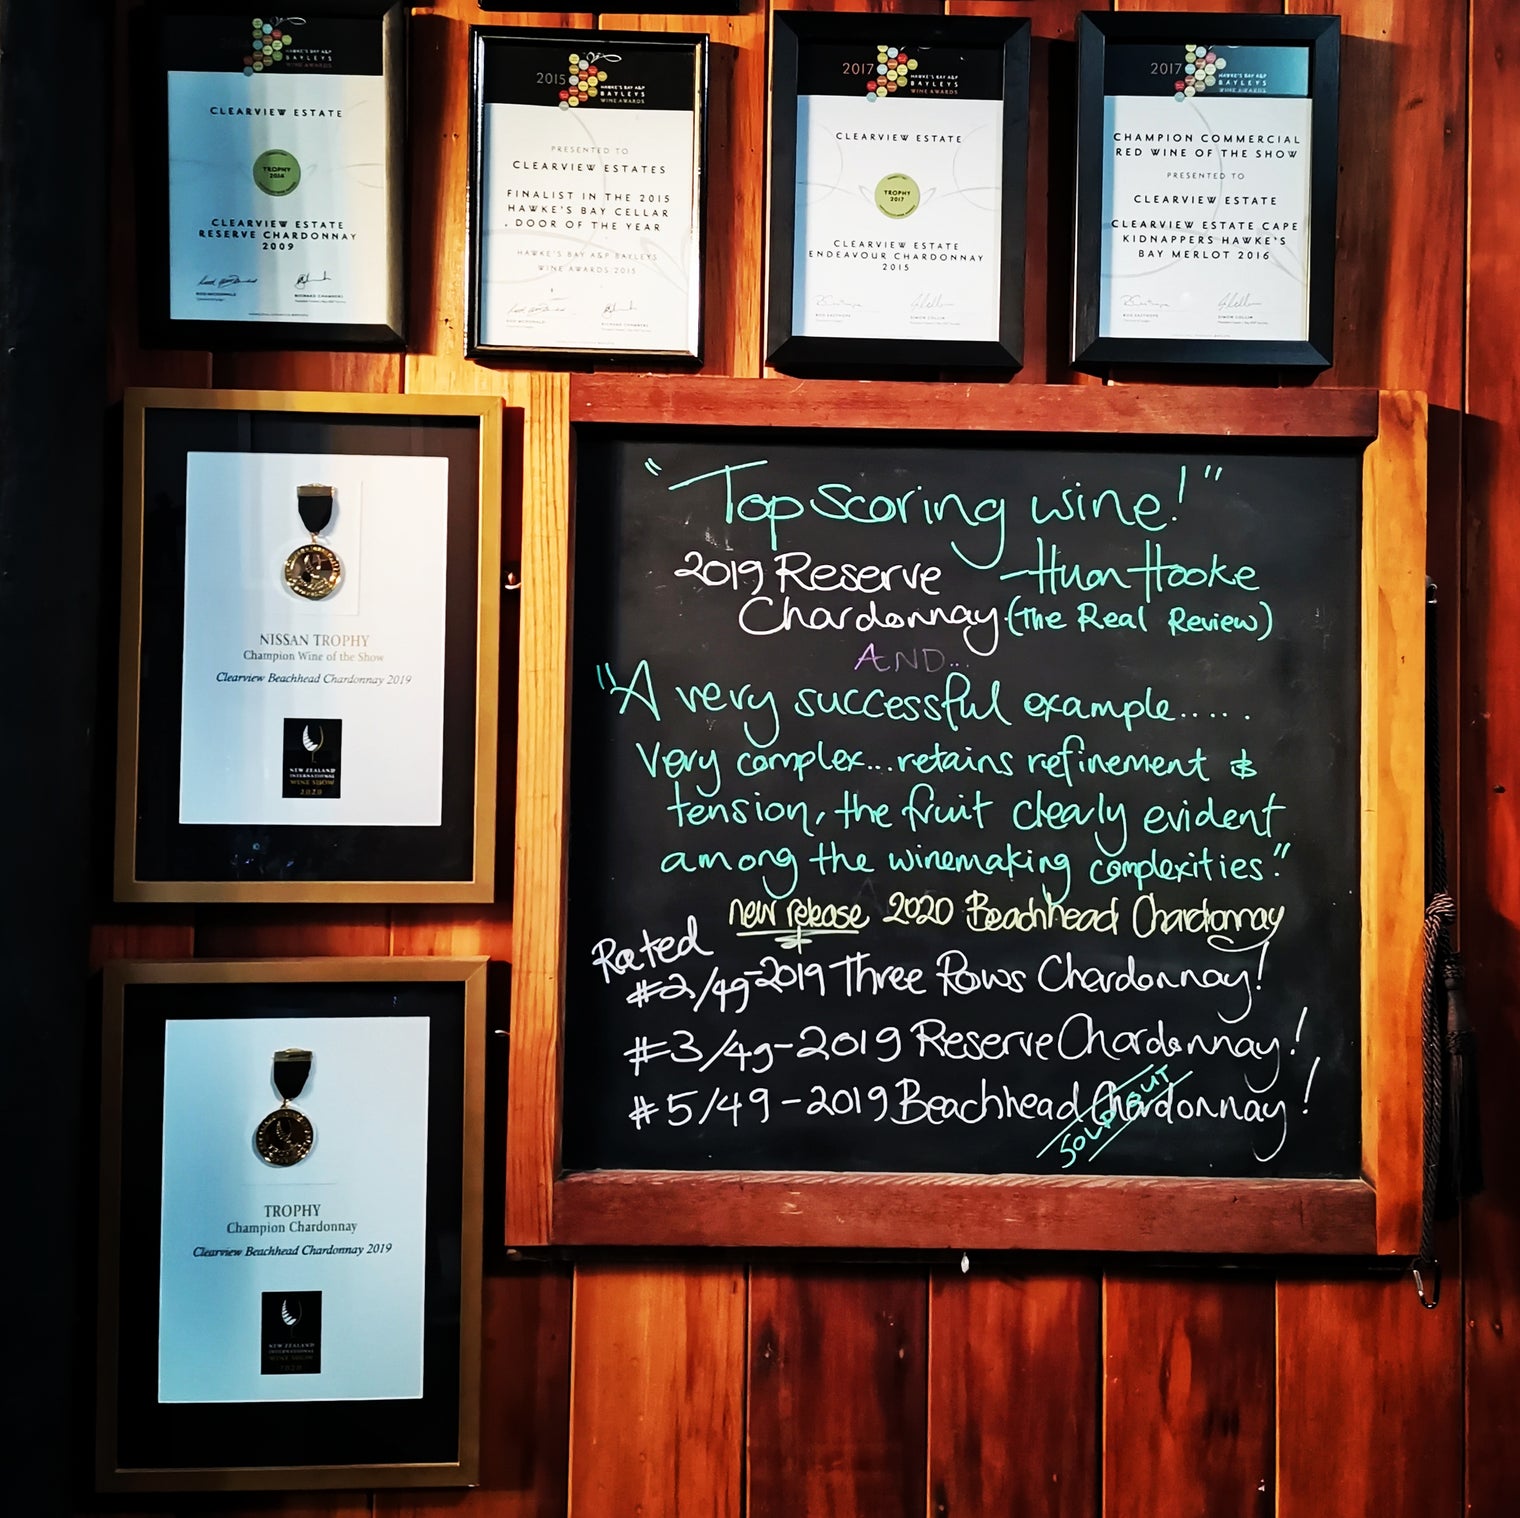 HAWKE'S BAY A&P
BAYLEYS
WINE AWARDS
CLEARVIEW ESTATE
TROPHY
CLEARVIEW ESTATE
RESERVE CHARDONNAY
2009
2015
HAWKE'S BAY A&P
BAYLEYS
WINE AWARDS
PRESENTED TO
CLEARVIEW ESTATES
FINALIST IN THE 2015
HAWKE'S BAY CELLAR
DOOR OF THE YEAR
HAWKE'S BAY A&P BAYLEYS
WINE AWARDS 2015
RICHARD CHAMBERS
2017
HAWKE'S BAY A&P
BAYLEYS
WINE AWARDS
CLEARVIEW ESTATE
TROPHY
2017
CLEARVIEW ESTATE
ENDEAVOUR CHARDONNAY
2015
ROD EASTHOPE
SIMON COLLIN
2017
HAWKE'S BAY A&P
BAYLEYS
WINE AWARDS
CHAMPION COMMERCIAL
RED WINE OF THE SHOW
PRESENTED TO
CLEARVIEW ESTATE
CLEARVIEW ESTATE CAPE
KIDNAPPERS HAWKE'S
BAY MERLOT 2016
ROD EASTHOPE
SIMON COLLIN
NISSAN TROPHY
Champion Wine of the Show
Clearview Beachhead Chardonnay 2019
NEW ZEALAND
INTERNATIONAL
WINE SHOW
2020
TROPHY
Champion Chardonnay
Clearview Beachhead Chardonnay 2019
NEW ZEALAND
INTERNATIONAL
WINE SHOW
2020
"Top scoring wine!"
2019 Reserve - Huon Hooke
Chardonnay (The Real Review)
AND...
"A very successful example.....
Very complex...retains refinement &
tension, the fruit clearly evident
among the winemaking complexities."
new release 2020 Beachhead Chardonnay
Rated
#2/49-2019 Three Rows Chardonnay!
#3/49-2019 Reserve Chardonnay!
#5/49-2019 Beachhead Chardonnay!
SOLD OUT